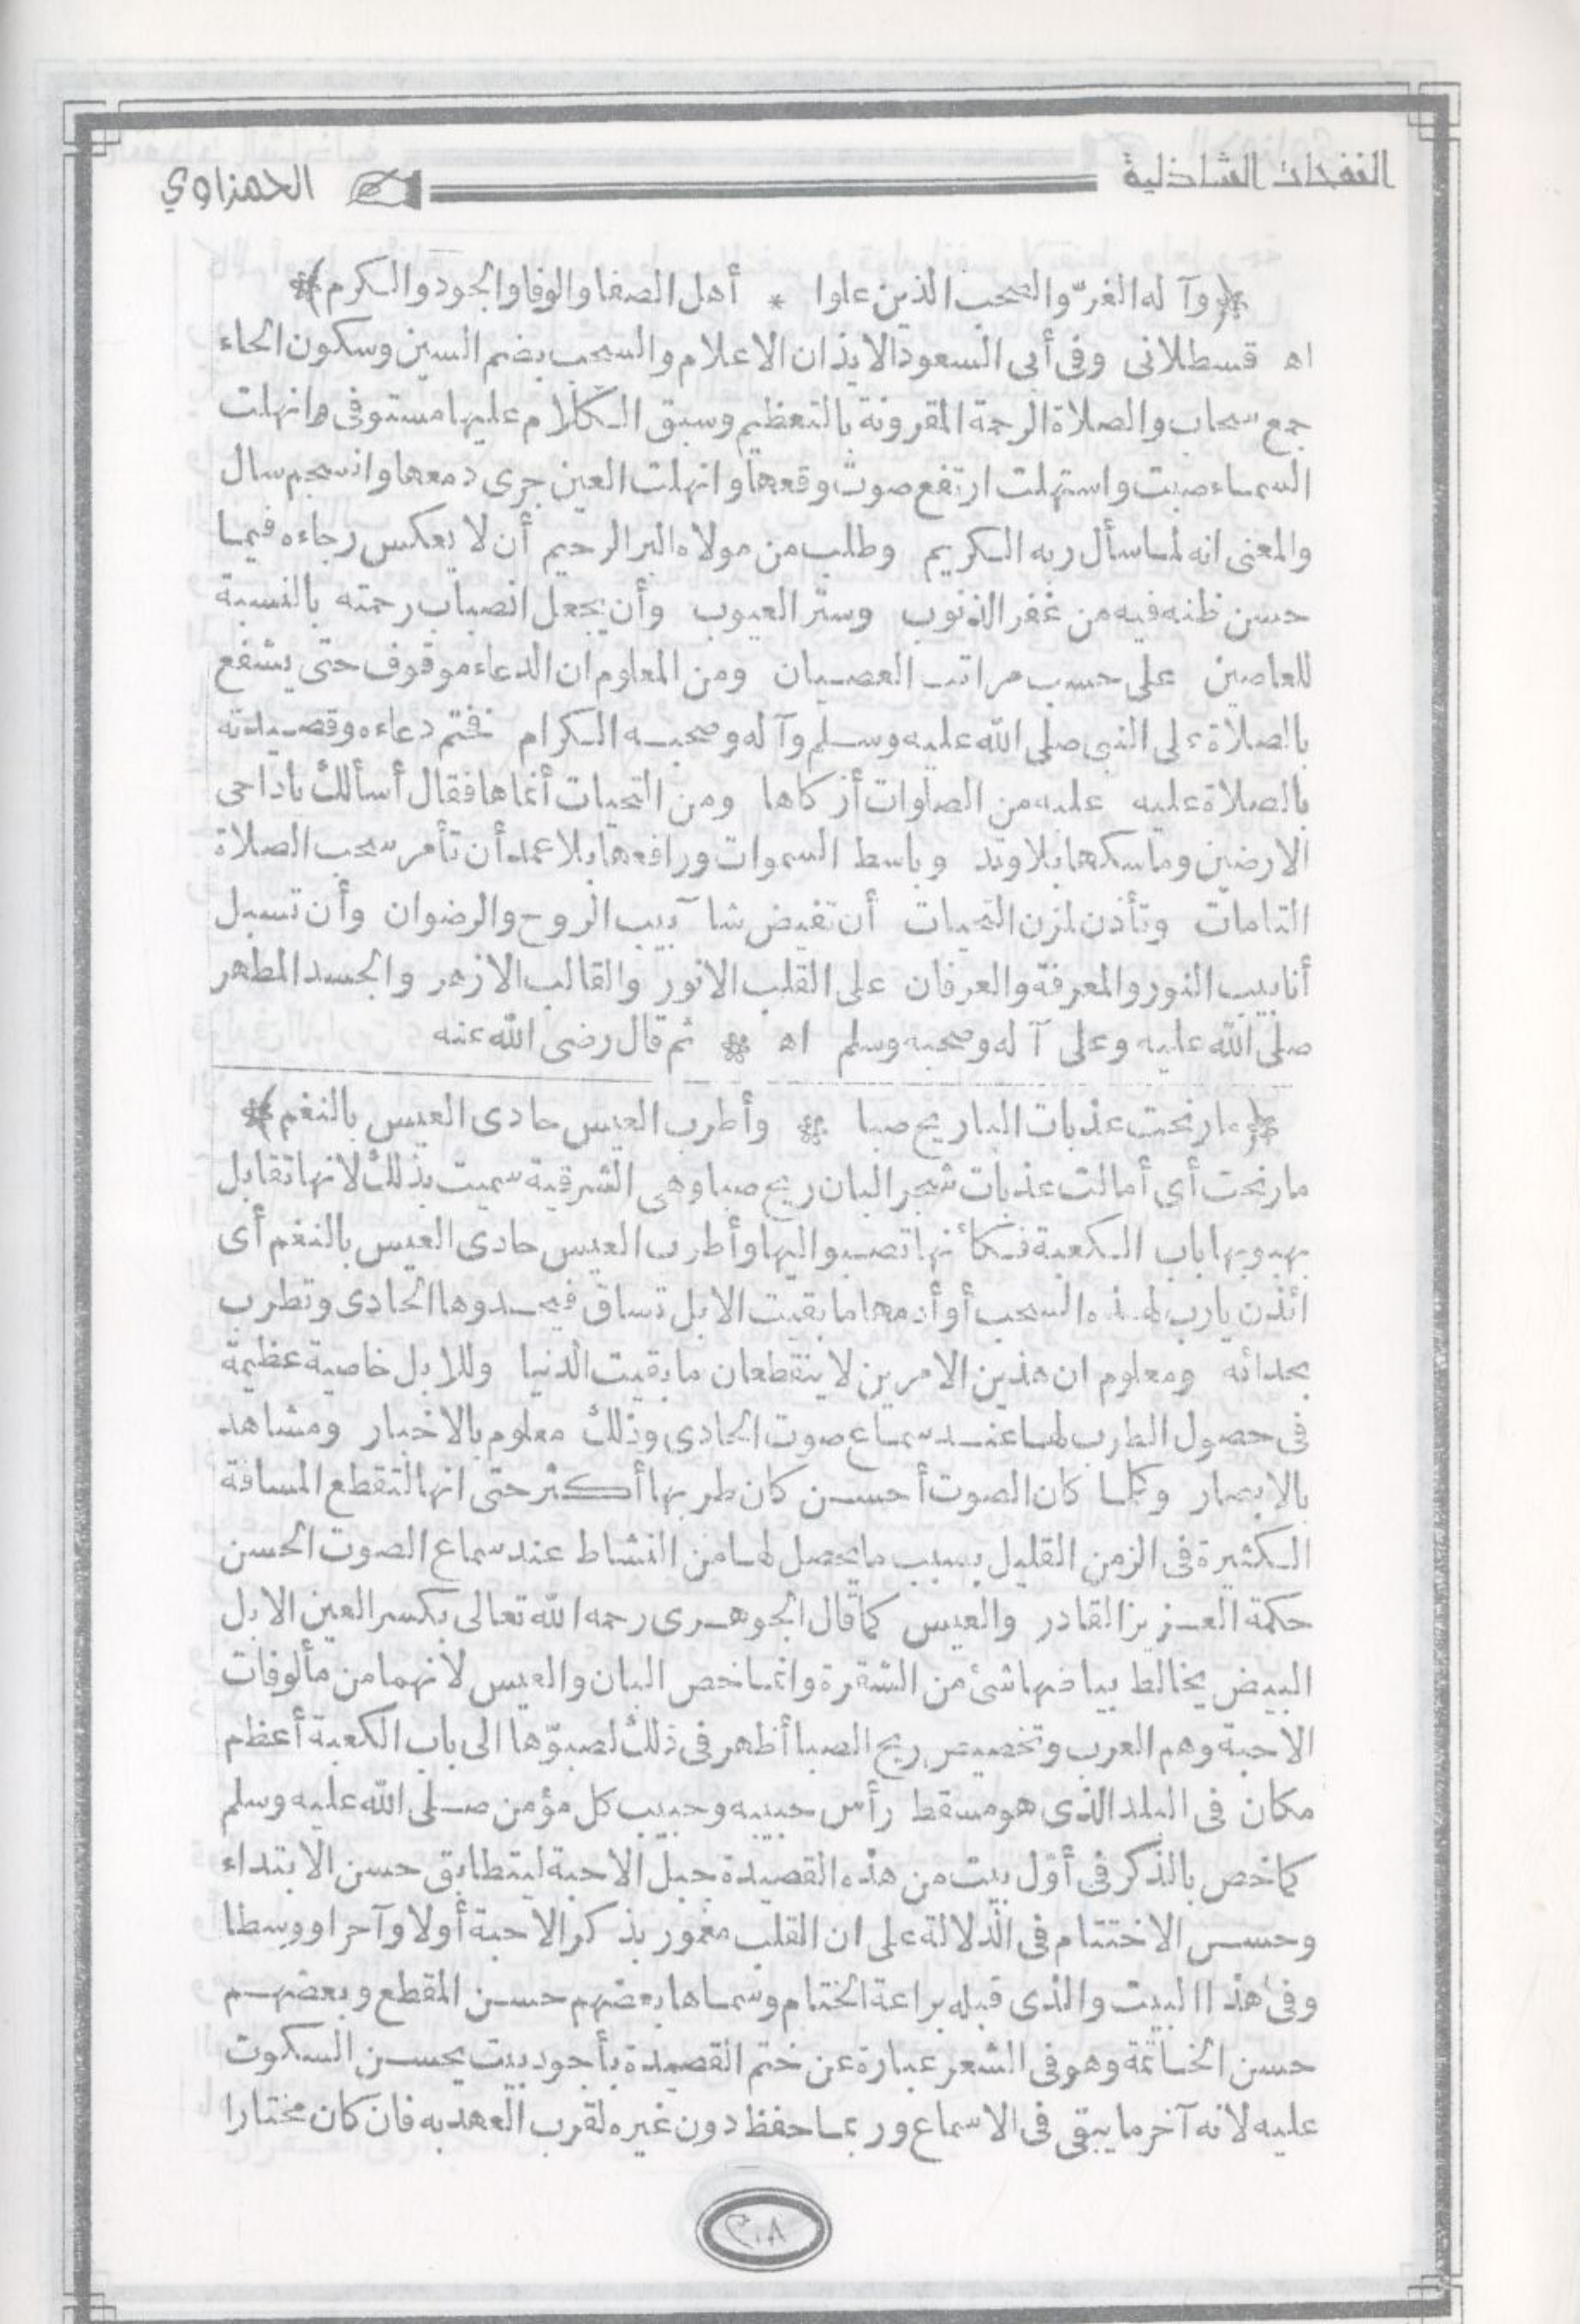 النفحات الشاذلية
الحمزاوي
﴿وآله الغرّ والصحب الذين علوا * أهل الصفا والوفا والجود والكرم﴾
اه قسطلانى وفى أبى السعود الايذان الاعلام والسحب بضم السين وسكون الحاء
جمع سحاب والصلاة الرحمة المقرونة بالتعظيم وسبق الكلام عليها مستوفى وانهلت
السماء صبت واستهلت ارتفع صوت وقعها وانهلت العين جرى دمعها وانسجم سال
والمعنى انه لما سأل ربه الكريم وطلب من مولاه البر الرحيم أن لا يعكس رجاءه فيما
حسن ظنه فيه من غفر الذنوب وستر العيوب وأن يجعل انصباب رحمته بالنسبة
للعاصين على حسب مراتب العصيان ومن المعلوم ان الدعاء موقوف حتى يشفع
بالصلاة على النبى صلى الله عليه وسلم وآله وصحبه الكرام فختم دعاءه وقصيدته
بالصلاة عليه عليه من الصلوات أزكاها ومن التحيات أنماها فقال أسألك ياداحى
الارضين وماسكها بلا وتد وباسط السموات ورافعها بلا عمد أن تأمر سحب الصلاة
التامات وتأذن لمزن التحيات أن تفيض شآبيب الروح والرضوان وأن تسبل
أنابيب النور والمعرفة والعرفان على القلب الانور والقالب الازهر والجسد المطهر
صلى الله عليه وعلى آله وصحبه وسلم اه * ثم قال رضى الله عنه
﴿ما رنحت عذبات البان ريح صبا * وأطرب العيس حادى العيس بالنغم﴾
ما رنحت أى أمالت عذبات شجر البان ريح صبا وهى الشرقية سميت بذلك لانها تقابل
بهبوبها باب الكعبة فكأنها تصبو اليها وأطرب العيس حادى العيس بالنغم أى
ائذن يارب لهذه السحب أو أدمها ما بقيت الابل تساق فيحدوها الحادى وتطرب
بحدائه ومعلوم ان هذين الامرين لا ينقطعان ما بقيت الدنيا وللابل خاصية عظيمة
فى حصول الطرب لها عند سماع صوت الحادى وذلك معلوم بالاخبار ومشاهد
بالابصار وكلما كان الصوت أحسن كان طربها أكثر حتى انها لتقطع المسافة
الكثيرة فى الزمن القليل بسبب ما يحصل لها من النشاط عند سماع الصوت الحسن
حكمة العزيز القادر والعيس كما قال الجوهرى رحمه الله تعالى بكسر العين الابل
البيض يخالط بياضها شئ من الشقرة وانما خص البان والعيس لانهما من مألوفات
الاحبة وهم العرب وتخصيص ريح الصبا أظهر فى ذلك لصبوّها الى باب الكعبة أعظم
مكان فى البلد الذى هو مسقط رأس حبيبه وحبيب كل مؤمن صلى الله عليه وسلم
كما خص بالذكر فى أوّل بيت من هذه القصيدة جبل الاحبة ليتطابق حسن الابتداء
وحسن الاختتام فى الدلالة على ان القلب مغمور بذكر الاحبة أولا وآخرا ووسطا
وفى هذا البيت والذى قبله براعة الختام وسماها بعضهم حسن المقطع وبعضهم
حسن الخاتمة وهو فى الشعر عبارة عن ختم القصيدة بأجود بيت يحسن السكوت
عليه لانه آخر ما يبقى فى الاسماع وربما حفظ دون غيره لقرب العهد به فان كان مختارا
٢٠٨